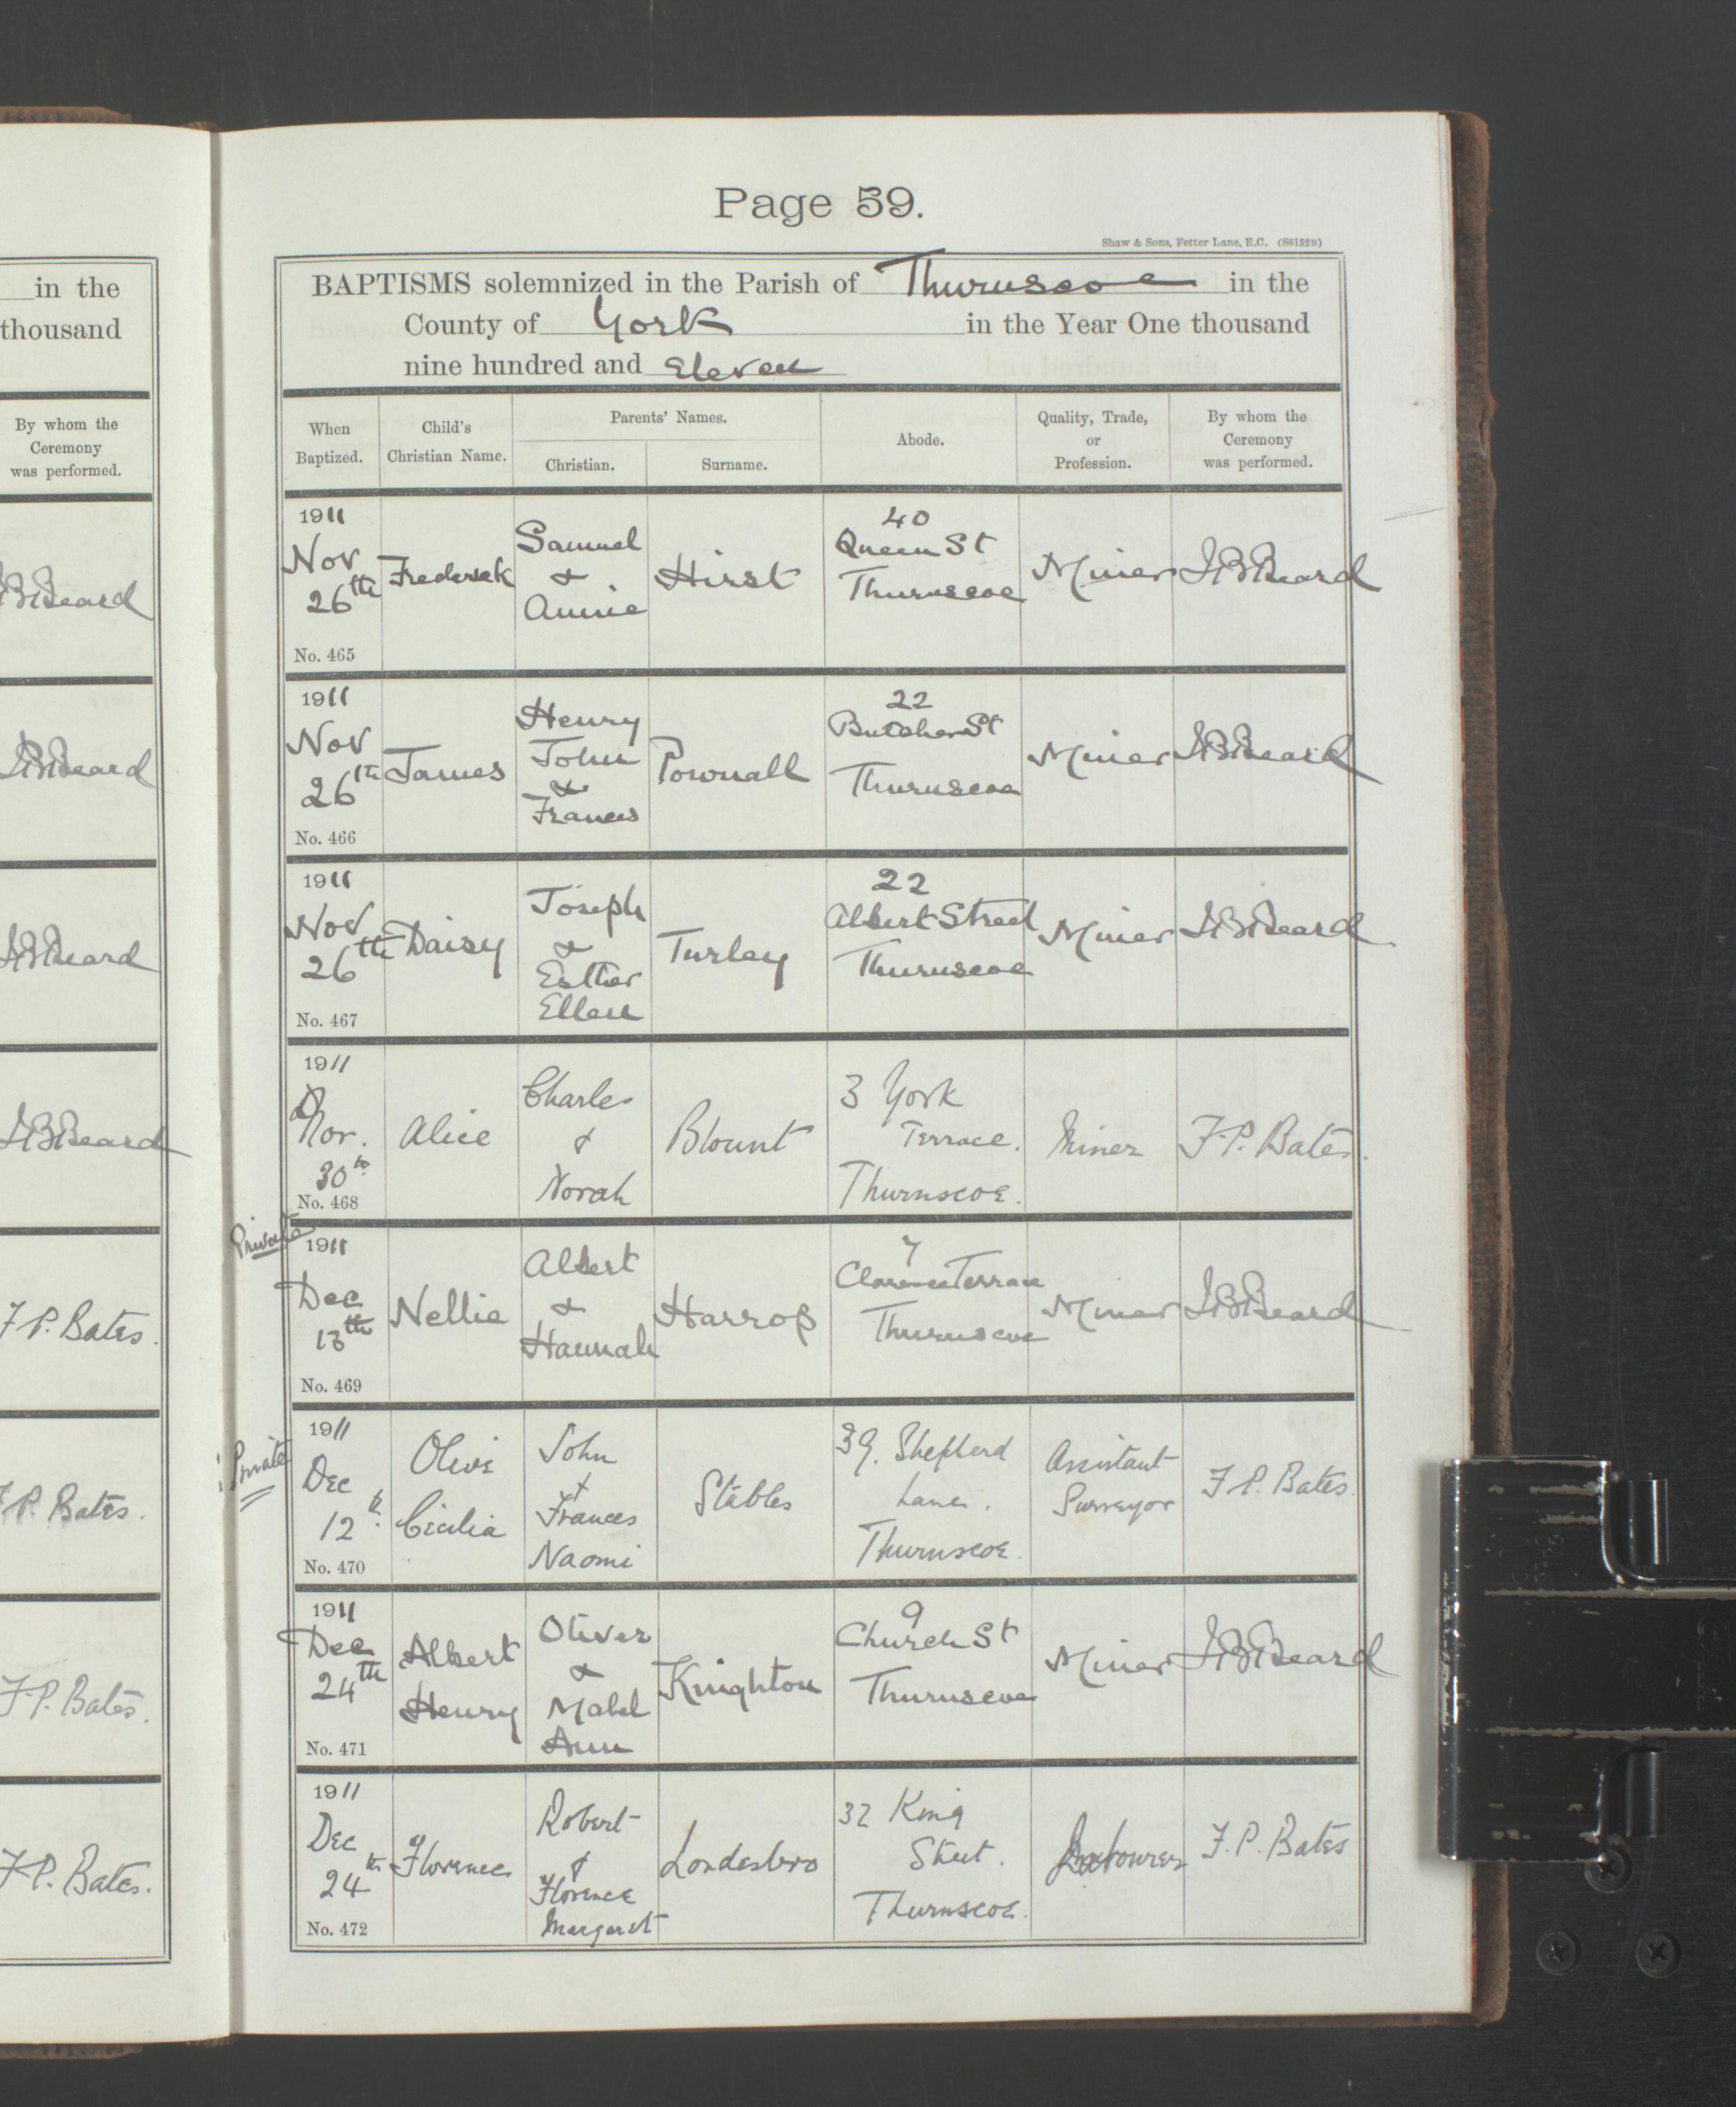 in the
thousand
By whom the
Ceremony
was performed.
F.P. Bates.
F.P. Bates.
F.P. Bates.
F.P. Bates.
Page 59.
Shaw & Sons, Fetter Lane, E.C. (S8152B)
BAPTISMS solemnized in the Parish of Thurnscoe in the
County of York in the Year One thousand
nine hundred and Eleven
When Baptized.
Child's Christian Name.
Parents' Names.
Christian.
Surname.
Abode.
Quality, Trade, or Profession.
By whom the Ceremony was performed.
1911 Nov 26th
Frederick
Samuel & Annie
Hirst
40 Queen St Thurnscoe
Miner
Beard
No. 465
1911 Nov 26th
James
Henry John & Frances
Pownall
22 Butcher St Thurnscoe
Miner
Beard
No. 466
1911 Nov 26th
Daisy
Joseph & Esther Ellen
Turley
22 Albert Street Thurnscoe
Miner
Beard
No. 467
1911 Nov. 30th
Alice
Charles & Norah
Blount
3 York Terrace. Thurnscoe.
Miner
F.P. Bates.
No. 468
Private
1911 Dec 13th
Nellie
Albert & Hannah
Harrop
7 Clarence Terrace Thurnscoe
Miner
Beard
No. 469
Private
1911 Dec 12th
Olive Cecilia
John & Frances Naomi
Stables
39. Shepherd Lane. Thurnscoe.
Assistant Surveyor
F.P. Bates.
No. 470
1911 Dec 24th
Albert Henry
Oliver & Mabel Ann
Knighton
9 Church St Thurnscoe
Miner
Beard
No. 471
1911 Dec 24th
Florence
Robert & Florence Margaret
Londesbro
32 King Street. Thurnscoe.
Labourer
F.P. Bates
No. 472